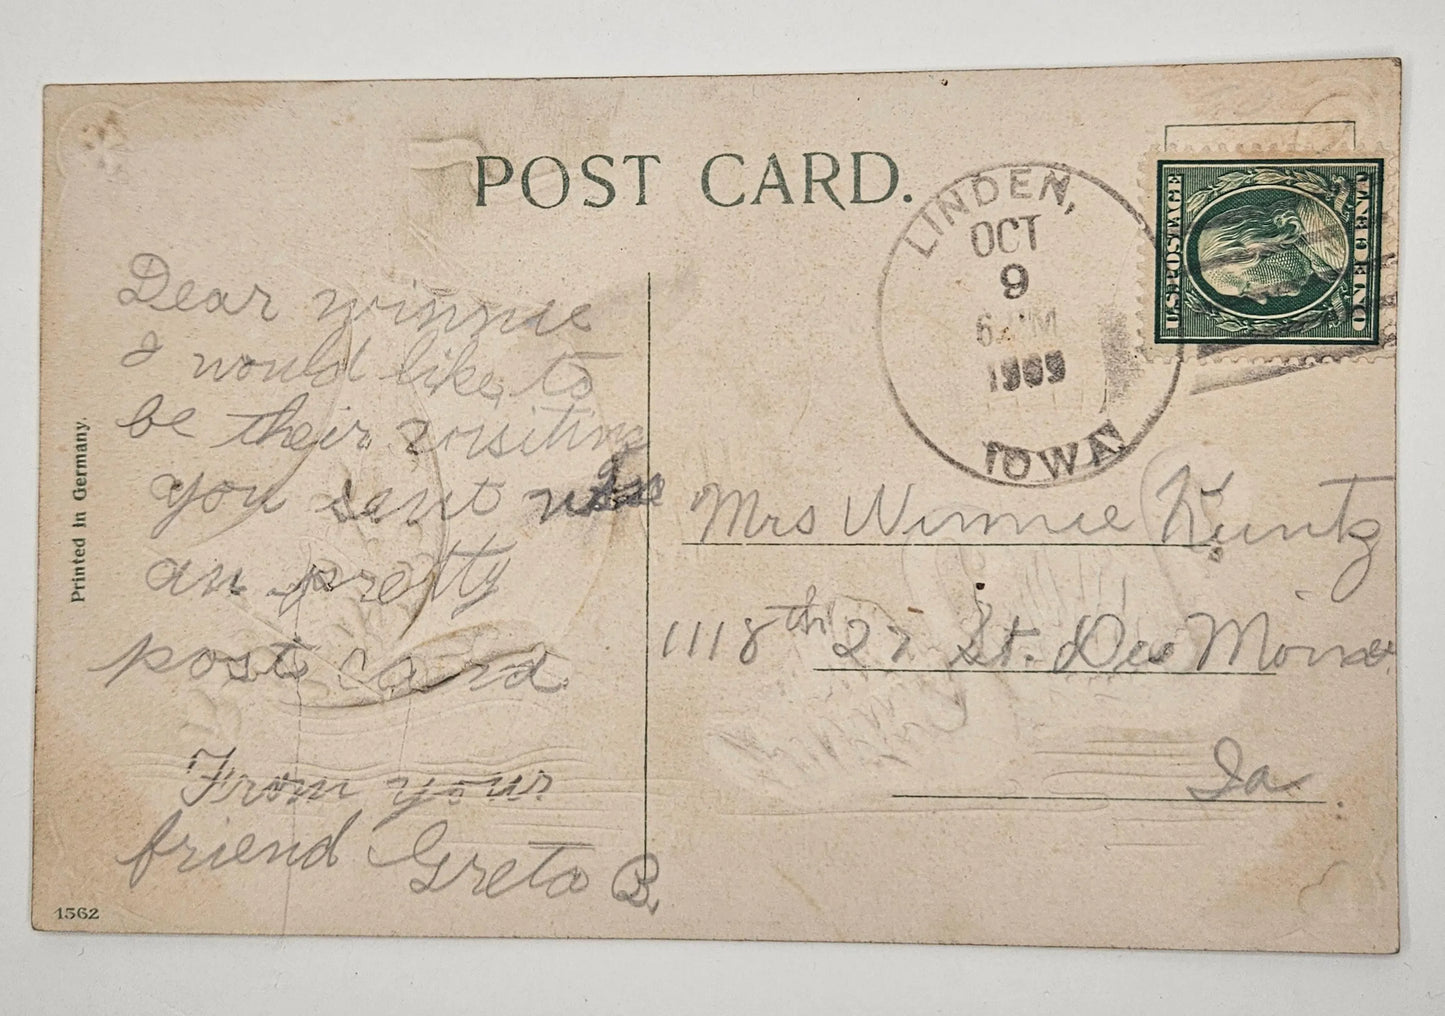 POST CARD.
LINDEN,
OCT
9
1909
IOWA
U.S. POSTAGE
ONE CENT
Dear Winnie
I would like to
be their visiting
you sent
an pretty
post card
From your
friend Greta B.
Mrs Winnie Kuntz
1118th 27 St. Des Moines
Ia
Printed in Germany.
1562